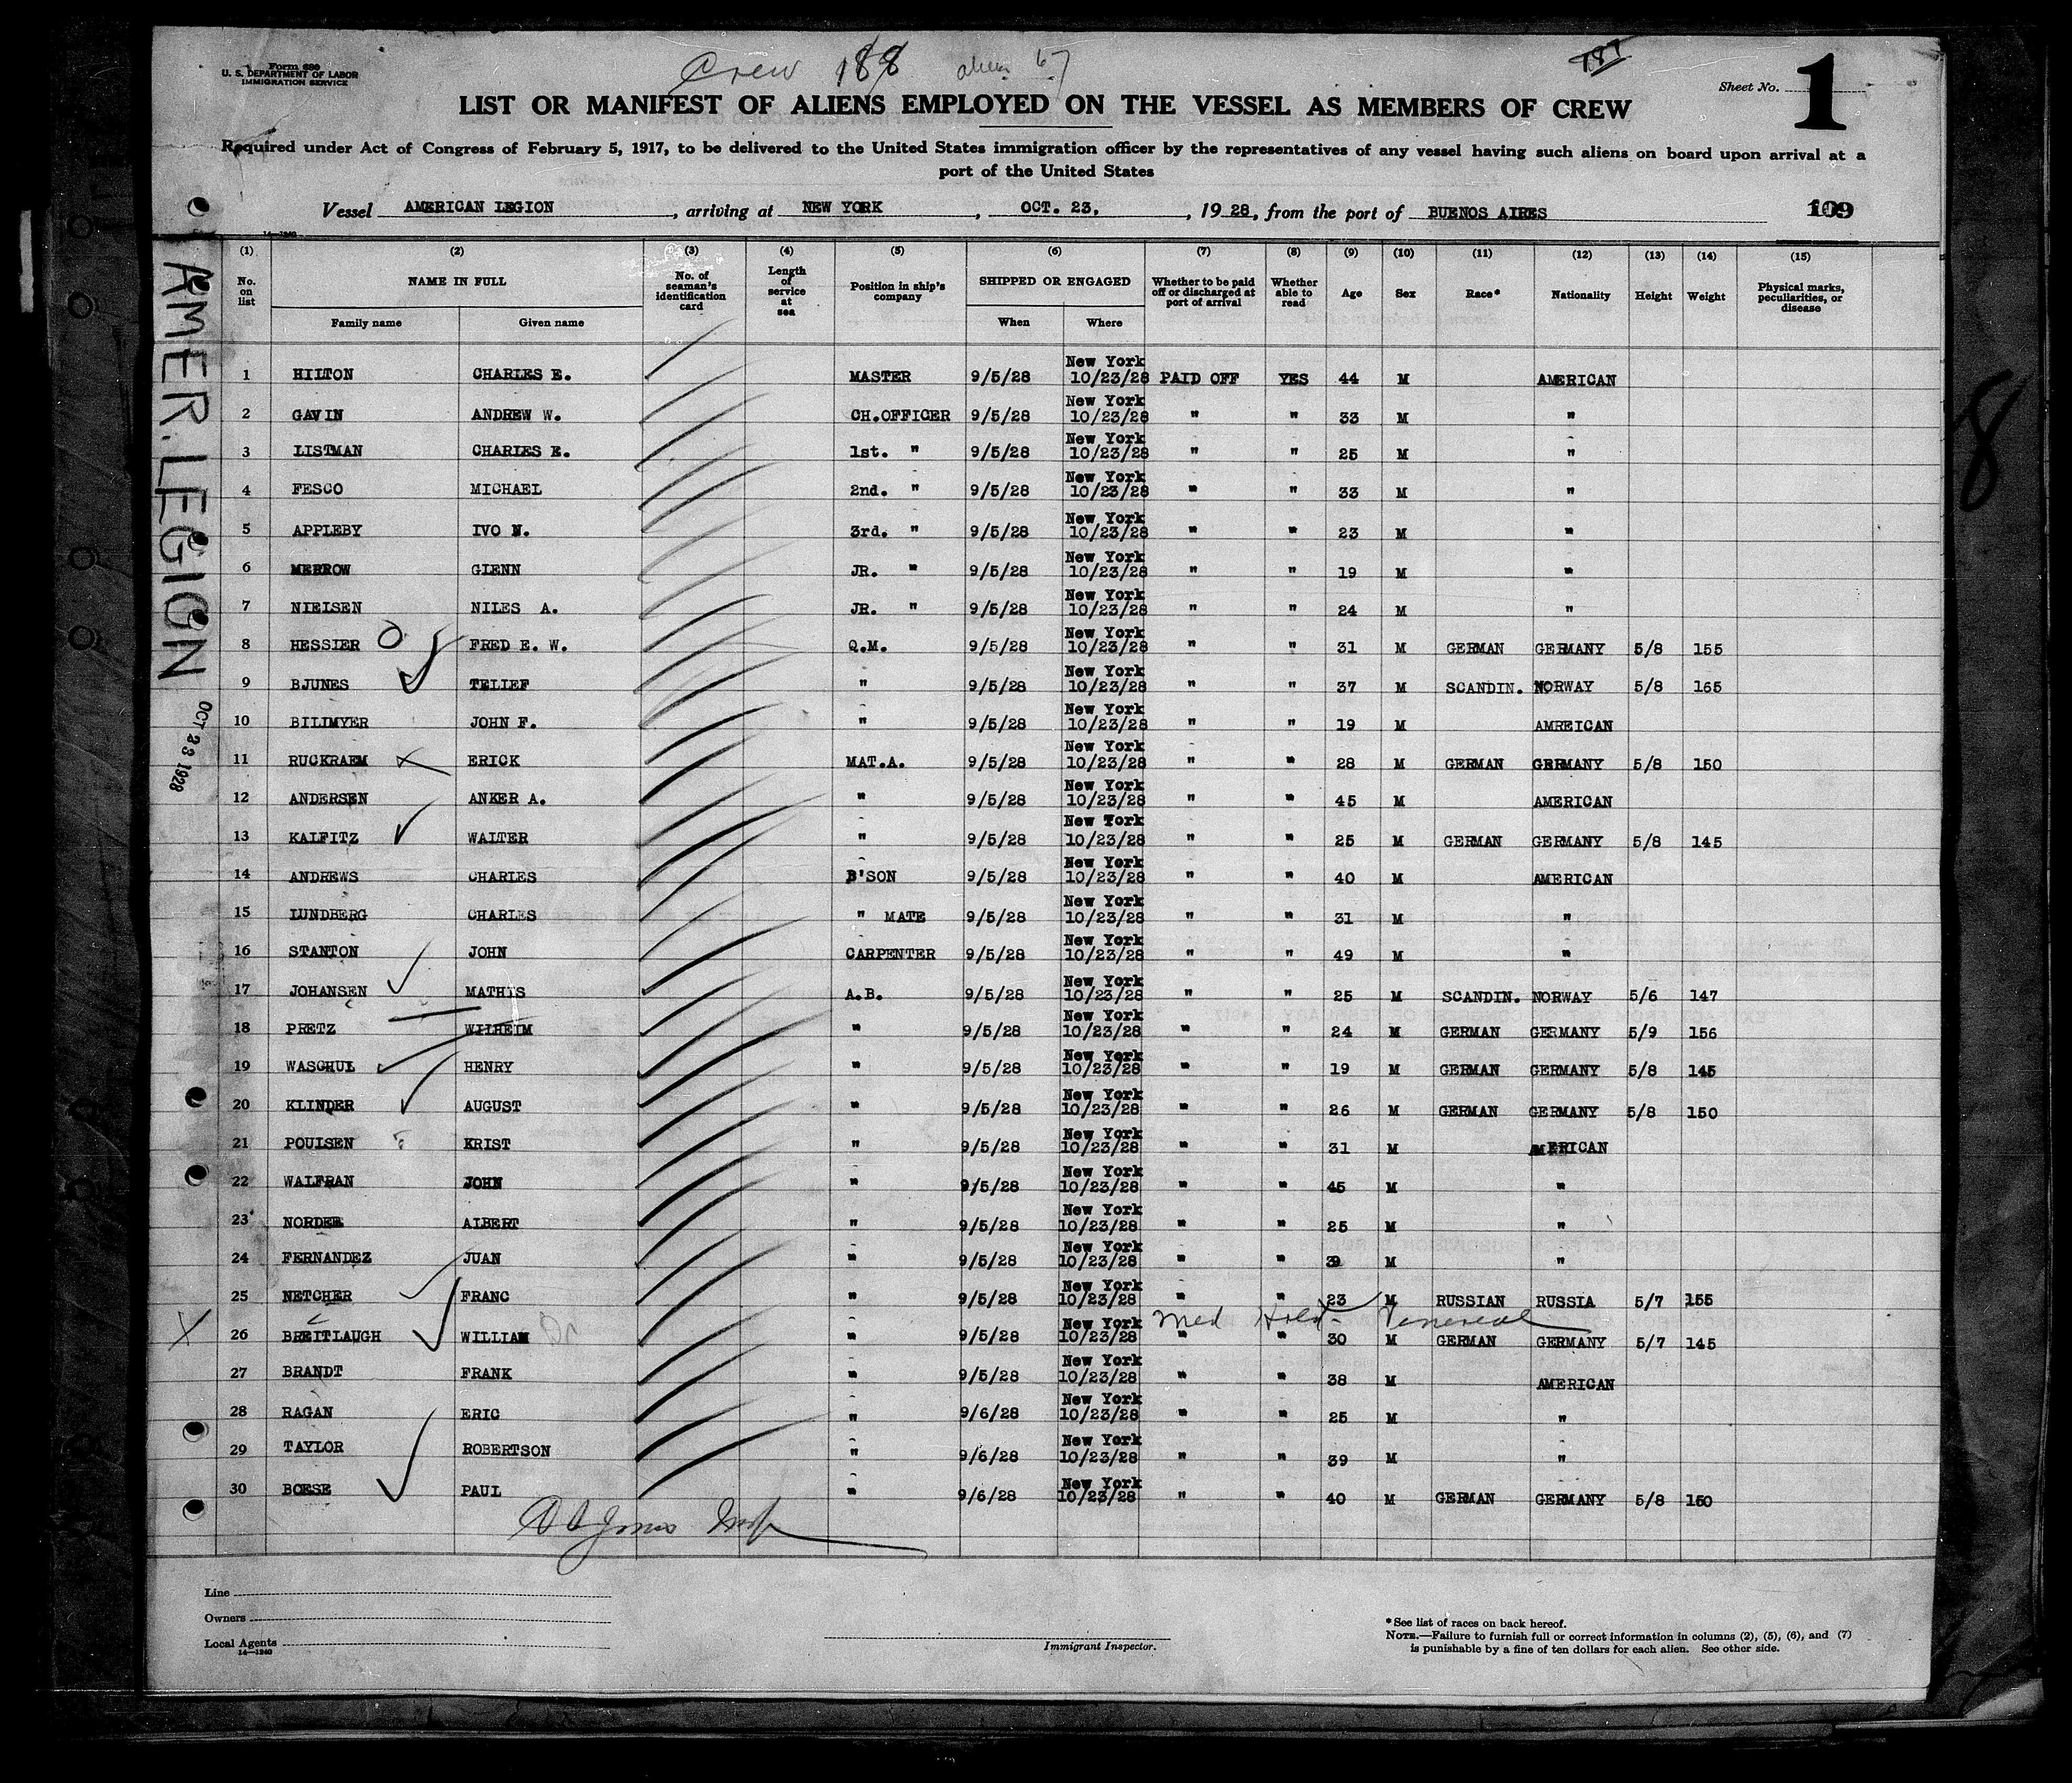 Form 680
U. S. DEPARTMENT OF LABOR
IMMIGRATION SERVICE
Crew 188 aliens 67
187
Sheet No. 1
LIST OR MANIFEST OF ALIENS EMPLOYED ON THE VESSEL AS MEMBERS OF CREW
Required under Act of Congress of February 5, 1917, to be delivered to the United States immigration officer by the representatives of any vessel having such aliens on board upon arrival at a
port of the United States
Vessel AMERICAN LEGION, arriving at NEW YORK, OCT. 23, 1928, from the port of BUENOS AIRES 109
14—1240
AMER. LEGION
OCT 23 1928
8
(1) (2) (3) (4) (5) (6) (7) (8) (9) (10) (11) (12) (13) (14) (15)
No. on list NAME IN FULL No. of seaman's identification card Length of service at sea Position in ship's company SHIPPED OR ENGAGED Whether to be paid off or discharged at port of arrival Whether able to read Age Sex Race* Nationality Height Weight Physical marks, peculiarities, or disease
Family name Given name When Where
1 HILTON CHARLES E. MASTER 9/5/28 New York 10/23/28 PAID OFF YES 44 M AMERICAN
2 GAVIN ANDREW W. CH.OFFICER 9/5/28 New York 10/23/28 " " 33 M "
3 LISTMAN CHARLES E. 1st. " 9/5/28 New York 10/23/28 " " 25 M "
4 FESCO MICHAEL 2nd. " 9/5/28 New York 10/23/28 " " 33 M "
5 APPLEBY IVO N. 3rd. " 9/5/28 New York 10/23/28 " " 23 M "
6 MERROW GLENN JR. " 9/5/28 New York 10/23/28 " " 19 M "
7 NIELSEN NILES A. JR. " 9/5/28 New York 10/23/28 " " 24 M "
8 HESSIER FRED E. W. Q.M. 9/5/28 New York 10/23/28 " " 31 M GERMAN GERMANY 5/8 155
9 BJUNES TELLEF " 9/5/28 New York 10/23/28 " " 37 M SCANDIN. NORWAY 5/8 165
10 BILLMYER JOHN F. " 9/5/28 New York 10/23/28 " " 19 M AMREICAN
11 RUCKRAEM ERICK MAT.A. 9/5/28 New York 10/23/28 " " 28 M GERMAN GERMANY 5/8 150
12 ANDERSEN ANKER A. " 9/5/28 New York 10/23/28 " " 45 M AMERICAN
13 KALFITZ WALTER " 9/5/28 New York 10/23/28 " " 25 M GERMAN GERMANY 5/8 145
14 ANDREWS CHARLES B'SON 9/5/28 New York 10/23/28 " " 40 M AMERICAN
15 LUNDBERG CHARLES " MATE 9/5/28 New York 10/23/28 " " 31 M "
16 STANTON JOHN CARPENTER 9/5/28 New York 10/23/28 " " 49 M "
17 JOHANSEN MATHIS A.B. 9/5/28 New York 10/23/28 " " 25 M SCANDIN. NORWAY 5/6 147
18 PRETZ WILHELM " 9/5/28 New York 10/23/28 " " 24 M GERMAN GERMANY 5/9 156
19 WASCHUL HENRY " 9/5/28 New York 10/23/28 " " 19 M GERMAN GERMANY 5/8 145
20 KLINDER AUGUST " 9/5/28 New York 10/23/28 " " 26 M GERMAN GERMANY 5/8 150
21 POULSEN KRIST " 9/5/28 New York 10/23/28 " " 31 M AMERICAN
22 WALFRAN JOHN " 9/5/28 New York 10/23/28 " " 45 M "
23 NORDEE ALBERT " 9/5/28 New York 10/23/28 " " 25 M "
24 FERNANDEZ JUAN " 9/5/28 New York 10/23/28 " " 39 M "
25 NETCHER FRANC " 9/5/28 New York 10/23/28 " " 23 M RUSSIAN RUSSIA 5/7 155
Med Hold - Venereal
26 BREITLAUGH WILLIAM " 9/5/28 New York 10/23/28 " " 30 M GERMAN GERMANY 5/7 145
27 BRANDT FRANK " 9/5/28 New York 10/23/28 " " 38 M AMERICAN
28 RAGAN ERIC " 9/6/28 New York 10/23/28 " " 25 M "
29 TAYLOR ROBERTSON " 9/6/28 New York 10/23/28 " " 39 M "
30 BOESE PAUL " 9/6/28 New York 10/23/28 " " 40 M GERMAN GERMANY 5/8 150
Line
Owners
Local Agents
14—1240
Immigrant Inspector.
* See list of races on back hereof.
NOTE.—Failure to furnish full or correct information in columns (2), (5), (6), and (7)
is punishable by a fine of ten dollars for each alien. See other side.